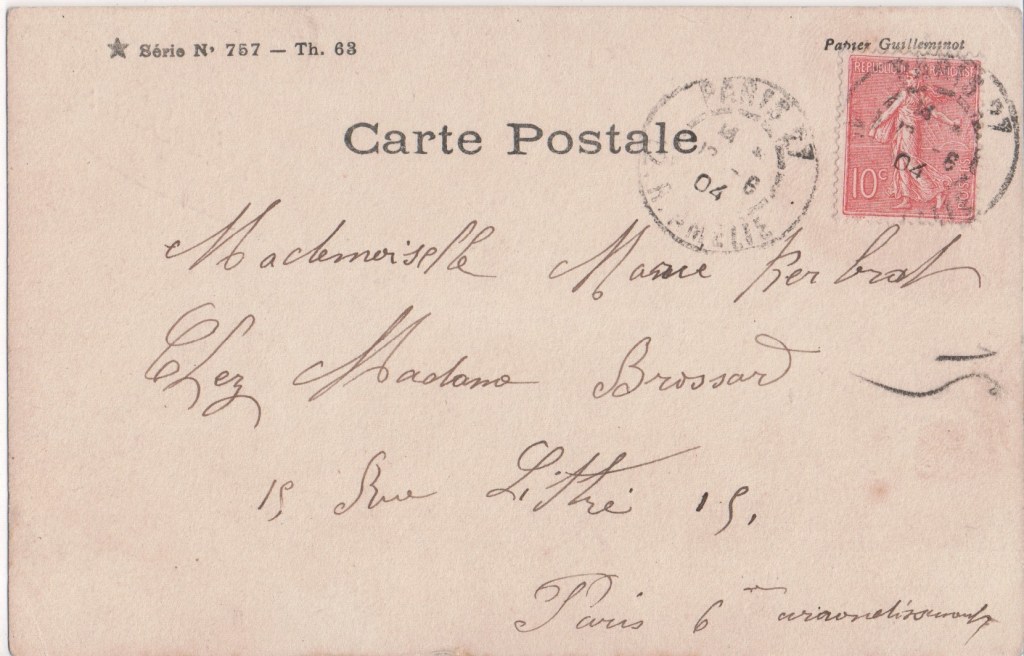 ★ Série N° 757 — Th. 63
Papier Guilleminot
Carte Postale
REPUBLIQUE
10c
PARIS
04
Mademoiselle Marie Kerbrat
Chez Madame Brossard
15 Rue Littré 15,
Paris 6 arrondissement